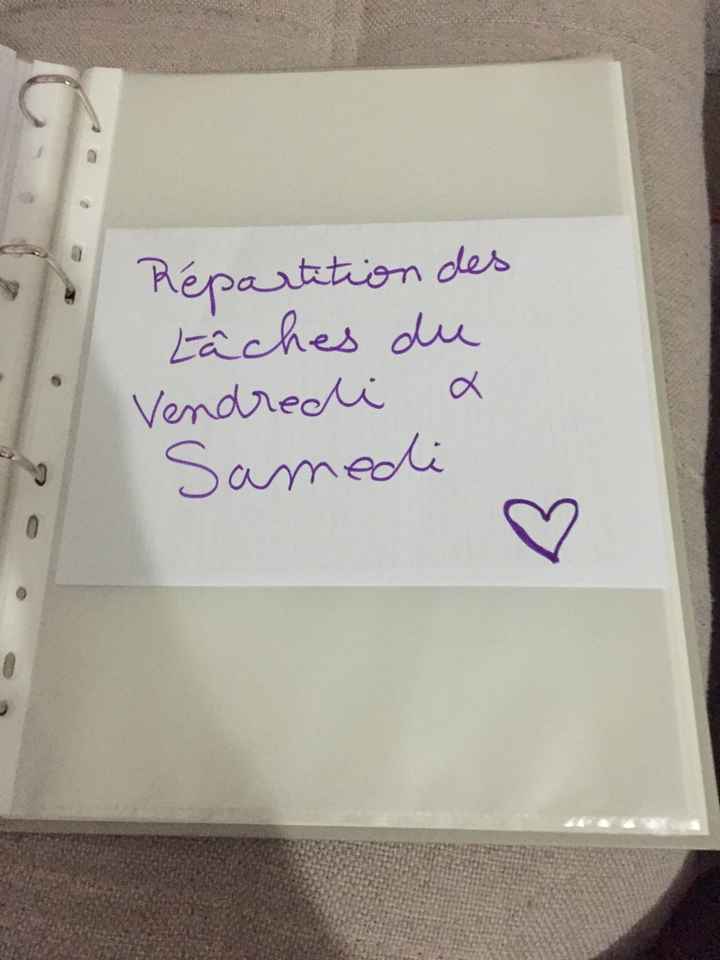 Répartition des
tâches du
Vendredi &
Samedi